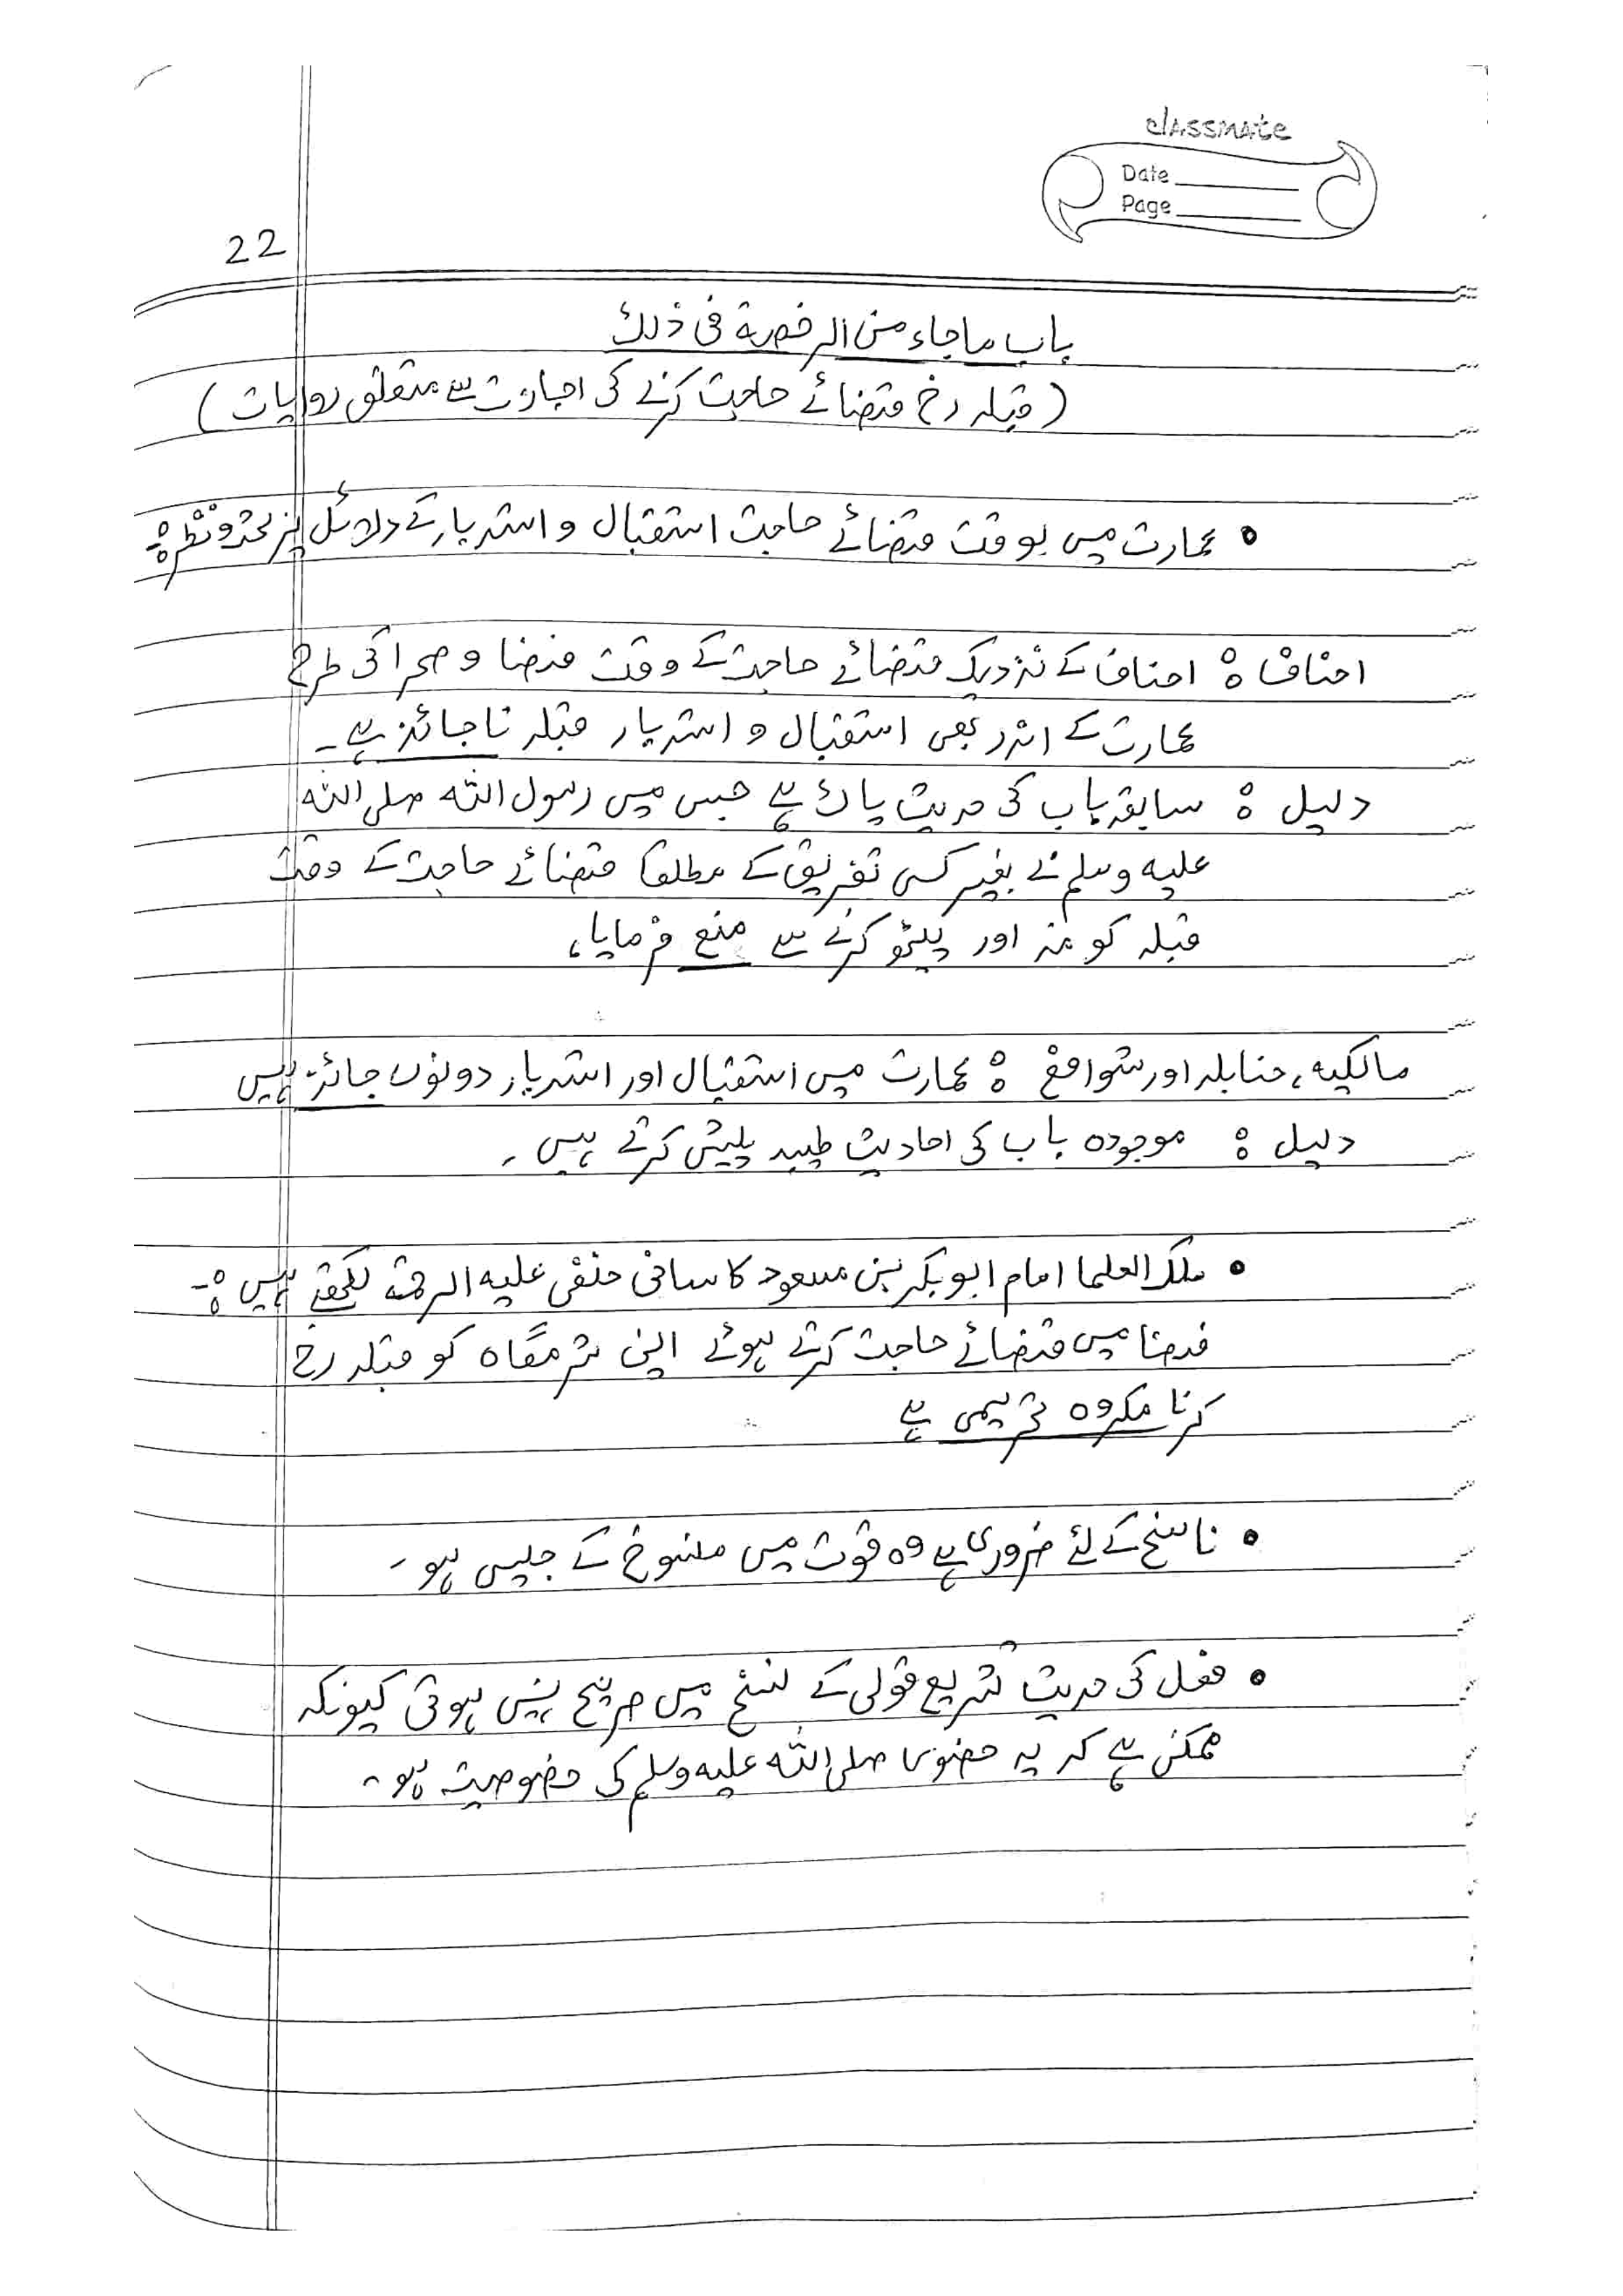 classmate
Date
Page
22
باب ما جاء من الرخصة فی ذلك
(قبلہ رخ قضائے حاجت کرنے کی اجازت سے متعلق روایات)
• عمارت میں بوقت قضائے حاجت استقبال و استدبار کے دلائل پر بحث و نظر :-
احناف : احناف کے نزدیک قضائے حاجت کے وقت فضا و صحرا کی طرح
عمارت کے اندر بھی استقبال و استدبار قبلہ ناجائز ہے ۔
دلیل : سابقہ باب کی حدیث پاک ہے جس میں رسول اللہ صلی اللہ
علیہ وسلم نے بغیر کسی تفریق کے مطلقا قضائے حاجت کے وقت
قبلہ کو منہ اور پیٹھ کرنے سے منع فرمایا،
مالکیہ، حنابلہ اور شوافع : عمارت میں استقبال اور استدبار دونوں جائز ہیں
دلیل : موجودہ باب کی احادیث طیبہ پیش کرتے ہیں ۔
• ملک العلما امام ابو بکر بن مسعود کاسانی حنفی علیہ الرحمۃ لکھتے ہیں :-
فضا میں قضائے حاجت کرتے ہوئے اپنی شرمگاہ کو قبلہ رخ
کرنا مکروہ تحریمی ہے
• ناسخ کے لئے ضروری ہے وہ قوت میں منسوخ کے جیسی ہو ۔
• فعل کی حدیث تشریع قولی کے نسخ میں صریح نہیں ہوتی کیونکہ
ممکن ہے کہ یہ حضور صلی اللہ علیہ وسلم کی خصوصیت ہو ۔